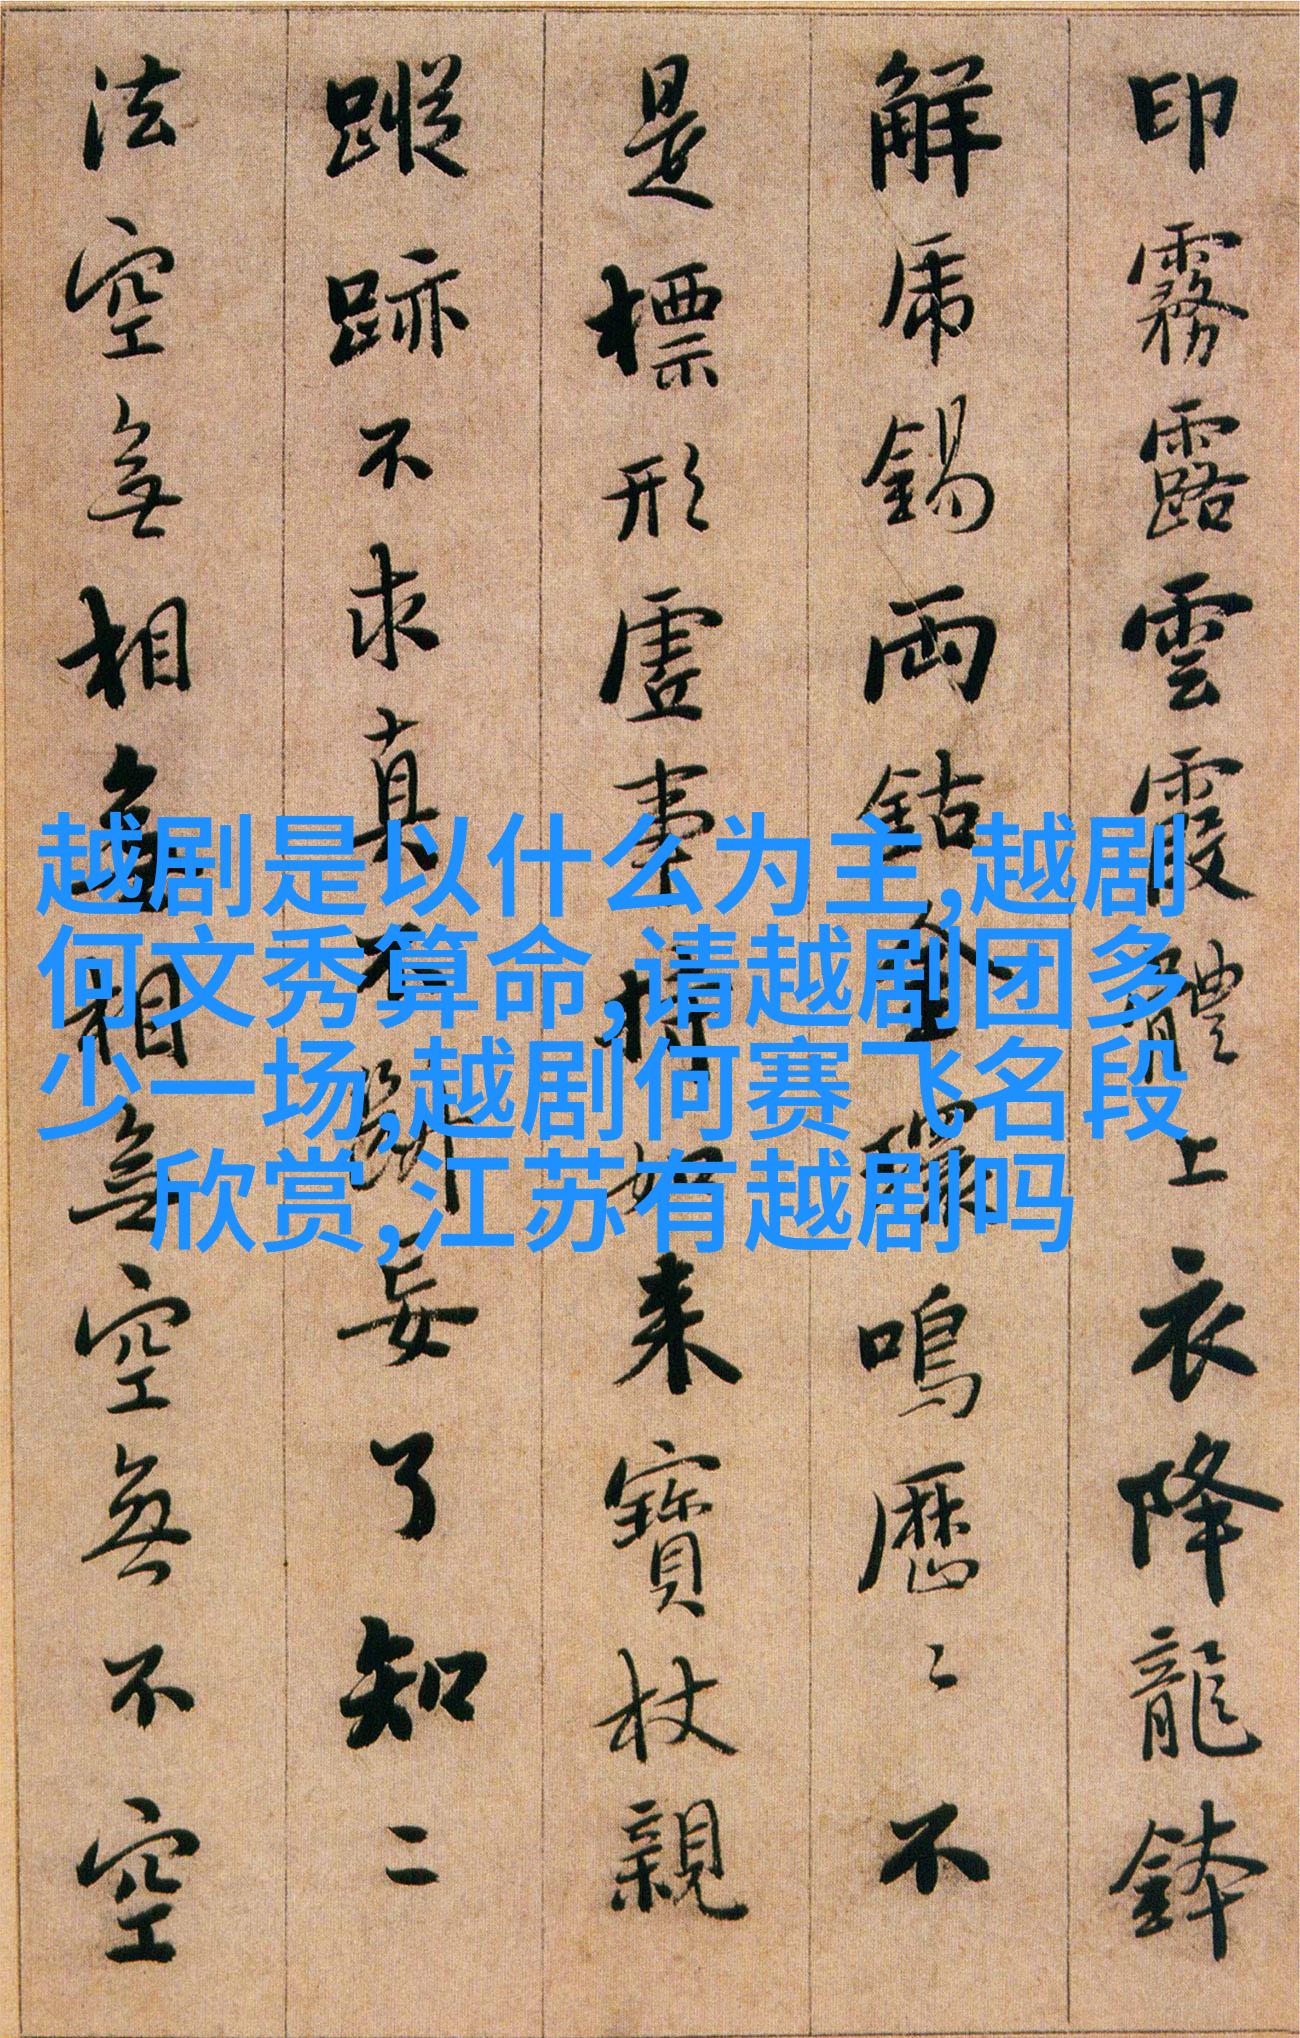 印霧露雲霞體上衣降龍鉢
解虎錫兩鈷金環鳴歷〻不
是標形虛事持如來寶杖親
蹤跡不求真不斷妄了知二
法空無相無相無空無不空
越剧是以什么为主,越剧
何文秀算命,请越剧团多
少一场,越剧何赛飞名段
欣赏,江苏有越剧吗